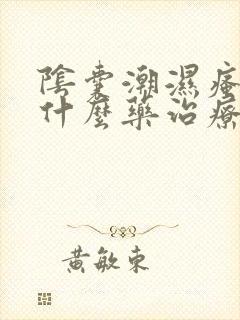 陰囊潮濕瘙
什麼藥治療
黃敏東